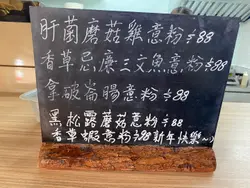 肝菌蘑菇雞意粉$88
香草忌廉三文魚意粉$88
拿破崙腸意粉$88
黑松露蘑菇意粉$88
香草蝦意粉$88新年快樂~